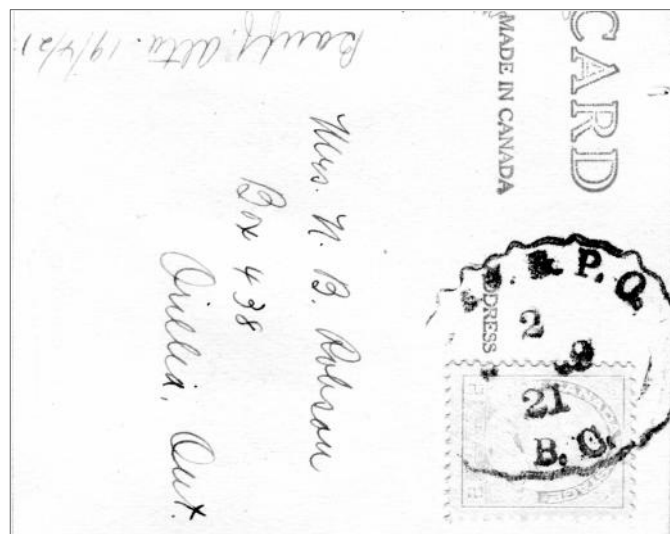 CARD
MADE IN CANADA
ADDRESS
P. O.
2
21
B. C.
Mrs. N. B. Robson
Box 438
Orillia, Ont.
Banff, Alta. 19/4/21